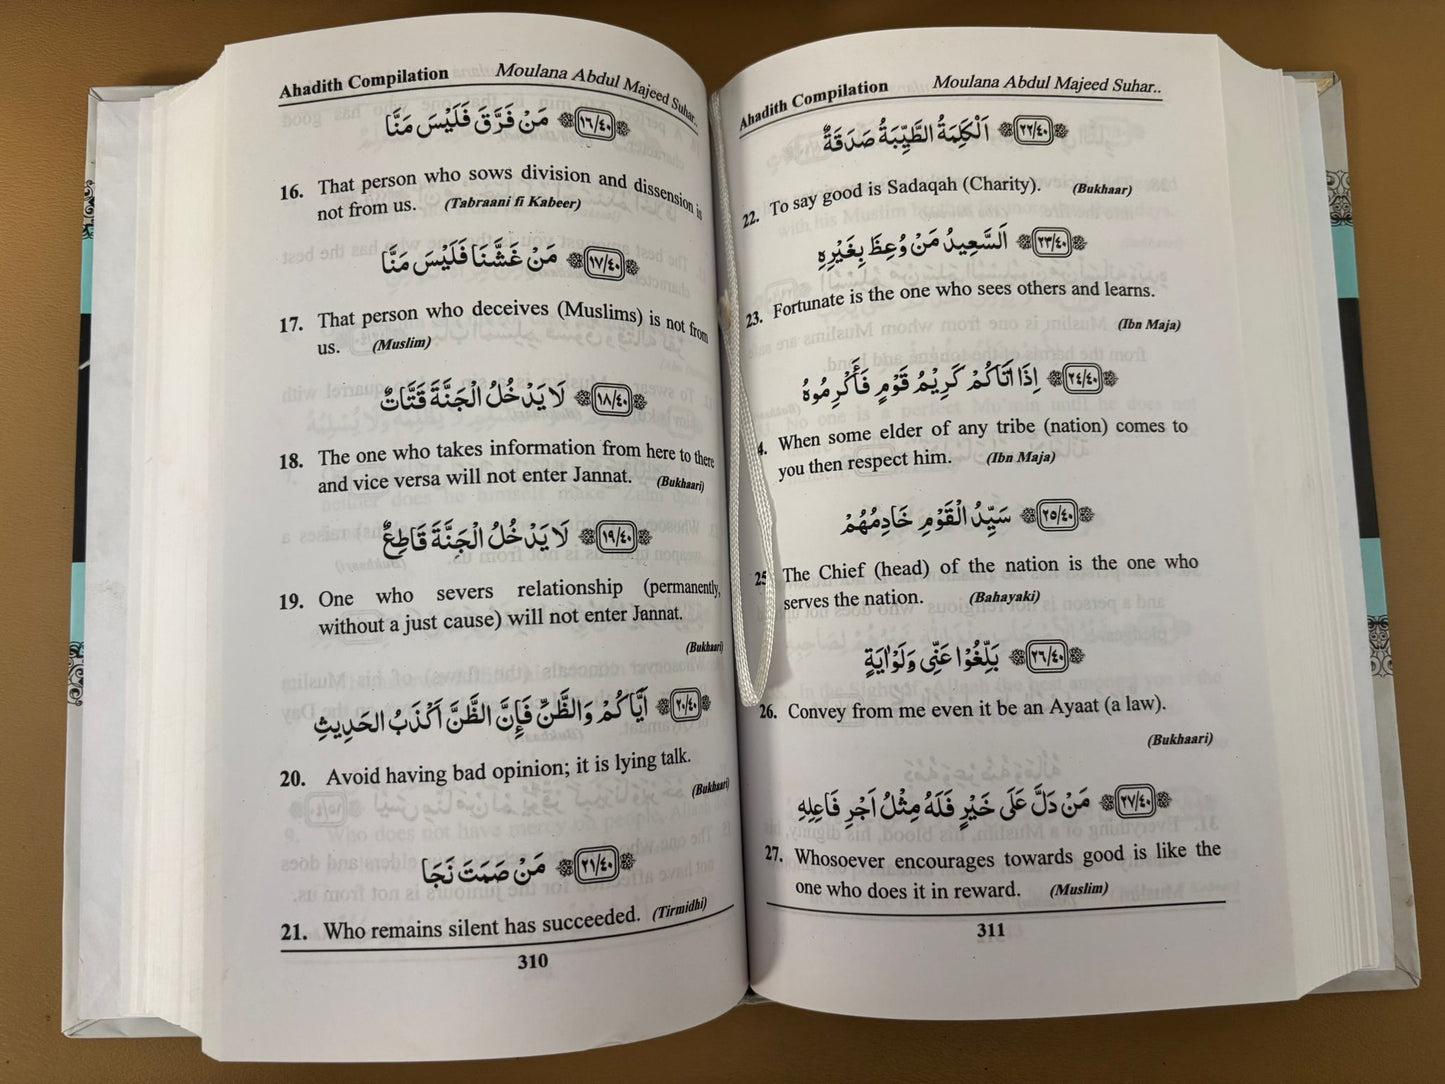 Ahadith Compilation Moulana Abdul Majeed Suhar..
﴿١٦/٤٠﴾ مَنْ فَرَّقَ فَلَيْسَ مَنَّا
16. That person who sows division and dissension is
not from us. (Tabraani fi Kabeer)
﴿١٧/٤٠﴾ مَنْ غَشَّنَا فَلَيْسَ مَنَّا
17. That person who deceives (Muslims) is not from
us. (Muslim)
﴿١٨/٤٠﴾ لَا يَدْخُلُ الْجَنَّةَ قَتَّاتٌ
18. The one who takes information from here to there
and vice versa will not enter Jannat. (Bukhaari)
﴿١٩/٤٠﴾ لَا يَدْخُلُ الْجَنَّةَ قَاطِعٌ
19. One who severs relationship (permanently,
without a just cause) will not enter Jannat.
(Bukhaari)
﴿٢٠/٤٠﴾ اَيَّاكُمْ وَالظَّنِّ فَإِنَّ الظَّنَّ اَكْذَبُ الحَدِيثِ
20. Avoid having bad opinion; it is lying talk.
(Bukhaari)
﴿٢١/٤٠﴾ مَنْ صَمَتَ نَجَا
21. Who remains silent has succeeded. (Tirmidhi)
310
Ahadith Compilation Moulana Abdul Majeed Suhar..
﴿٢٢/٤٠﴾ اَلْكَلِمَةُ الطَّيِّبَةُ صَدَقَةٌ
22. To say good is Sadaqah (Charity). (Bukhaar)
﴿٢٣/٤٠﴾ اَلسَّعِيدُ مَنْ وُعِظَ بِغَيْرِهِ
23. Fortunate is the one who sees others and learns.
(Ibn Maja)
﴿٢٤/٤٠﴾ اِذَا اَتَاكُمْ كَرِيْمُ قَوْمٍ فَأَكْرِمُوهُ
4. When some elder of any tribe (nation) comes to
you then respect him. (Ibn Maja)
﴿٢٥/٤٠﴾ سَيِّدُ الْقَوْمِ خَادِمُهُمْ
25 The Chief (head) of the nation is the one who
serves the nation. (Bahayaki)
﴿٢٦/٤٠﴾ بَلِّغُوْا عَنِّى وَلَوْاٰيَةٍ
26. Convey from me even it be an Ayaat (a law).
(Bukhaari)
﴿٢٧/٤٠﴾ مَنْ دَلَّ عَلَى خَيْرٍ فَلَهُ مِثْلُ اَجْرِ فَاعِلِهِ
27. Whosoever encourages towards good is like the
one who does it in reward. (Muslim)
311